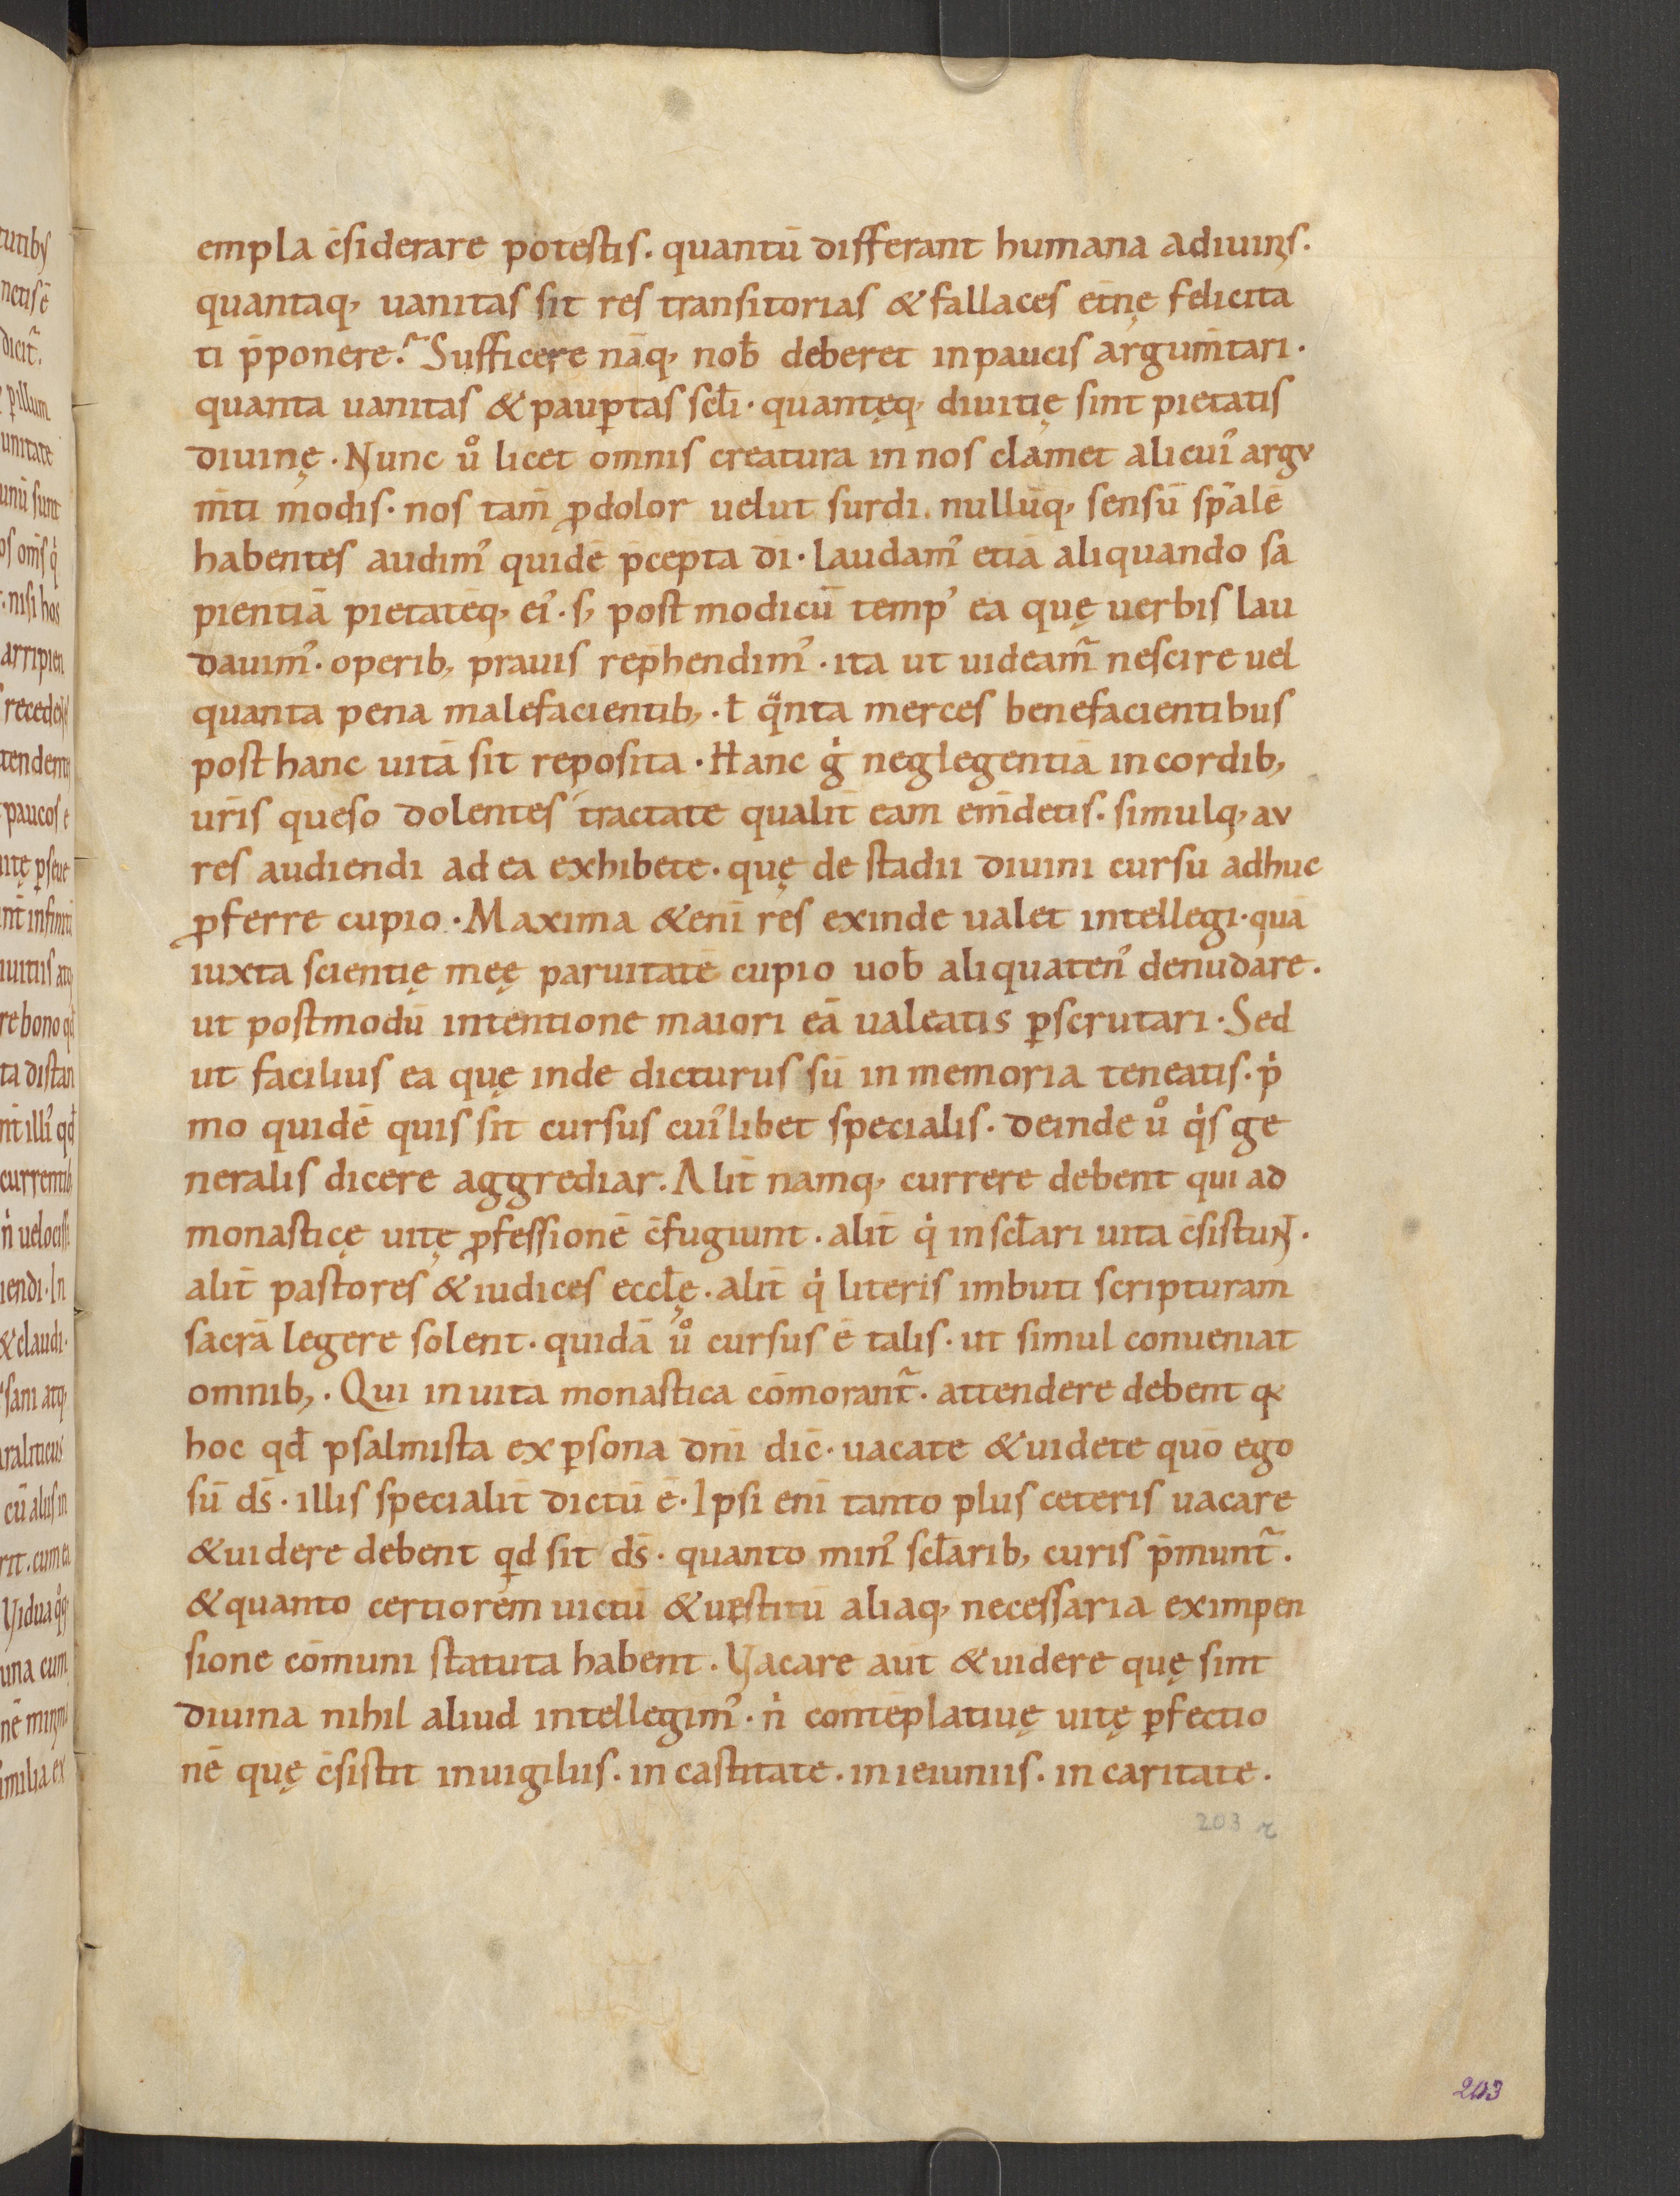 empla c̄siderare potestis· quantū differant humana adiuinis·
quantaq, uanitas sit res transitorias & fallaces et̄nę felicita
ti p̄ponere? Sufficere nāq, nob̄ deberet inpaucis argum̄tari·
quanta uanitas & paup̱tas scl̄i· quantęq, diuitię sint pietatis
diuinę· Nunc ů licet omnis creatura in nos clamet alicui᾿ argu
m̄ti modis· nos tam̄ ꝓdolor uelut surdi. nullūq, sensū sp̄alē
habentes audim᾿ quidē p̄cepta dī· laudam᾿ etiā aliquando sa
pientiā pietatēq, ei᾿· s, post modicū temp᾿ ea quę uerbis lau
dauim᾿· operib, prauis rep̄hendim᾿· ita ut uideam̃ nescire uel
quanta pena malefacientib,· ł qͣnta merces benefacientibus
post hanc uitā sit reposita· Hanc gͥ neglegentiā incordib,
ur̄is queso dolentes tractate qualit̄ eam em̄detis· simulq, au
res audiendi ad ea exhibete· quę de stadii diuini cursu adhuc
ꝓferre cupio· Maxima &enī res exinde ualet intellegi· quā
iuxta scientię meę paruitatē cupio uob̄ aliquaten᾿ denudare·
ut postmodū intentione maiori eā ualeatis ꝑscrutari· Sed
ut facilius ea quę inde dicturus sū in memoria teneatis· pͥ
mo quidē quis sit cursus cui᾿libet specialis· deinde ů qͥs ge
neralis dicere aggrediar. Alit̄ namq, currere debent qui ad
monasticę uitę ꝓfessionē c̄fugiunt· alit̄ qͥ inscl̄ari uita c̄sistunt·
alit̄ pastores & iudices eccl̄ę· alit̄ qͥ literis imbuti scripturam
sacrā legere solent· quidā ů cursus ē talis· ut simul conueniat
omnib,· Qui inuita monastica cōmorant̃· attendere debent q&
hoc qd̄ psalmista ex ꝑsona dnī dic̄· uacate &uidete quō ego
sū ds̄· illis specialit̄ dictū ē· Ipsi enī tanto plus ceteris uacare
&uidere debent qd sit ds̄· quanto min᾿ scl̄arib, curis p̄munt̃·
&quanto certiorem uictū &uestitū aliaq, necessaria eximpen
sione cōmuni statuta habent· Vacare aūt &uidere quę sint
diuina nihil aliud intellegim᾿· nͥ contēplatiuę uitę ꝑfectio
nē quę c̄sistit inuigiliis· in castitate· in ieiuniis· in caritate·
203 r
203